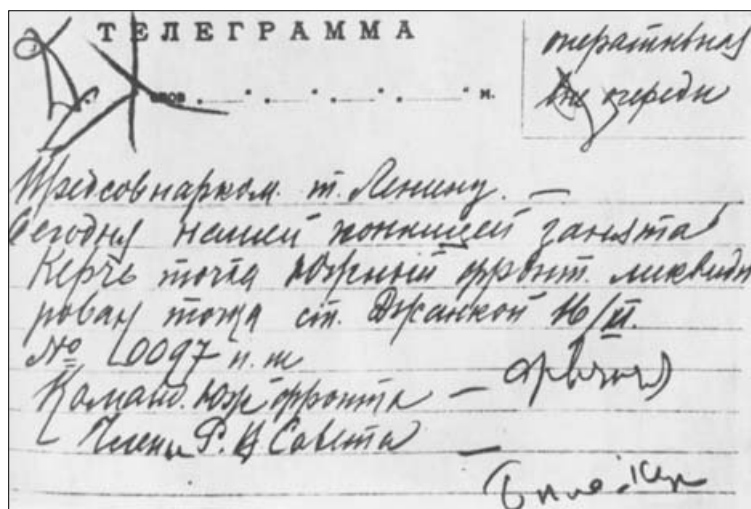 ТЕЛЕГРАММА
оперативная
вне очереди
слов м.
Предсовнарком. т. Ленину. —
Сегодня нашей конницей занята
Керчь точка Южный фронт. ликвиди
рован точка ст. Джанкой 16/XI.
№ 0097 п. ш
Команд. Южфронта — Фрунзе
Члены Р. В Совета —